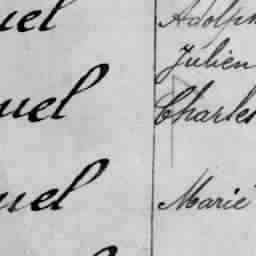 uel Adolph
Julien
uel Charles
uel Marie